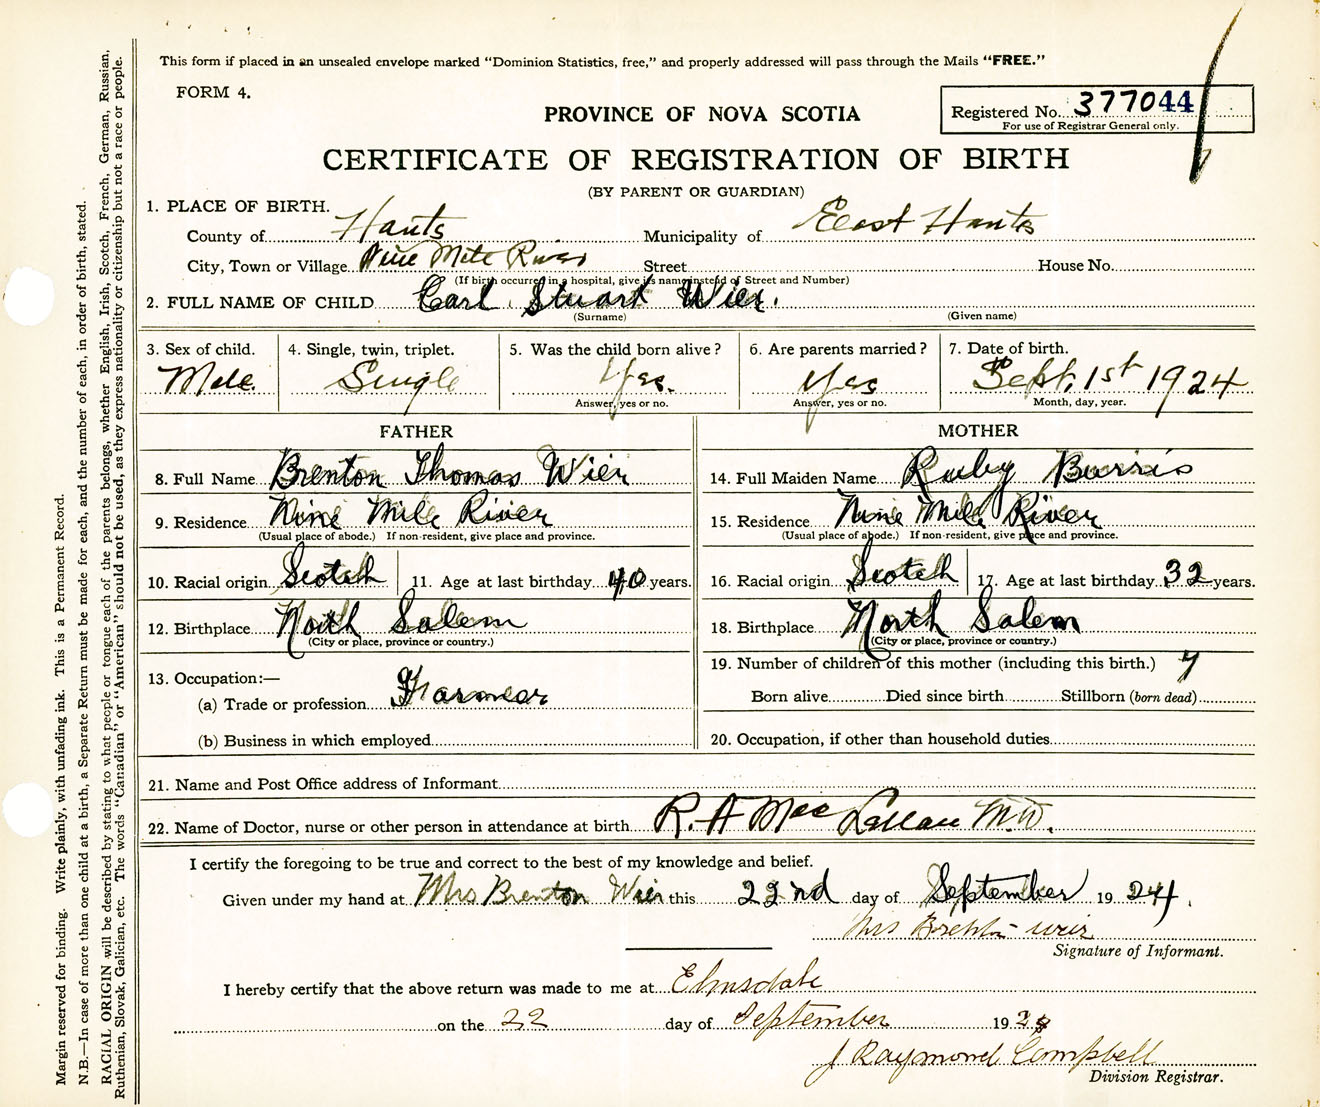 This form if placed in an unsealed envelope marked "Dominion Statistics, free," and properly addressed will pass through the Mails "FREE."
FORM 4.
Registered No. 377044
For use of Registrar General only.
PROVINCE OF NOVA SCOTIA
CERTIFICATE OF REGISTRATION OF BIRTH
(BY PARENT OR GUARDIAN)
1. PLACE OF BIRTH.
County of Hants Municipality of East Hants
City, Town or Village Nine Mile River Street House No.
(If birth occurred in a hospital, give its name instead of Street and Number)
2. FULL NAME OF CHILD Carl Stuart Wier.
(Surname) (Given name)
3. Sex of child. 4. Single, twin, triplet. 5. Was the child born alive? 6. Are parents married? 7. Date of birth.
Male. Single Yes. Yes Sept. 1st 1924
Answer, yes or no. Answer, yes or no. Month, day, year.
FATHER MOTHER
8. Full Name Brenton Thomas Wier 14. Full Maiden Name Ruby Burris
9. Residence Nine Mile River 15. Residence Nine Mile River
(Usual place of abode.) If non-resident, give place and province. (Usual place of abode.) If non-resident, give place and province.
10. Racial origin Scotch 11. Age at last birthday 40 years. 16. Racial origin Scotch 17. Age at last birthday 32 years.
12. Birthplace North Salem 18. Birthplace North Salem
(City or place, province or country.) (City or place, province or country.)
13. Occupation:— 19. Number of children of this mother (including this birth.)
(a) Trade or profession Farmer Born alive Died since birth Stillborn (born dead)
(b) Business in which employed 20. Occupation, if other than household duties
21. Name and Post Office address of Informant
22. Name of Doctor, nurse or other person in attendance at birth R. A Mac Lellan M.D.
I certify the foregoing to be true and correct to the best of my knowledge and belief.
Given under my hand at Mrs Brenton Wier this 22nd day of September 1924.
Mrs Brenton Weir
Signature of Informant.
I hereby certify that the above return was made to me at Elmsdale
on the 22 day of September 19
J Raymond Campbell
Division Registrar.
Margin reserved for binding. Write plainly, with unfading ink. This is a Permanent Record.
N.B.—In case of more than one child at a birth, a Separate Return must be made for each, and the number of each, in order of birth, stated.
RACIAL ORIGIN will be described by stating to what people or tongue each of the parents belongs, whether English, Irish, Scotch, French, German, Russian,
Ruthenian, Slovak, Galician, etc. The words "Canadian" or "American" should not be used, as they express nationality or citizenship but not a race or people.